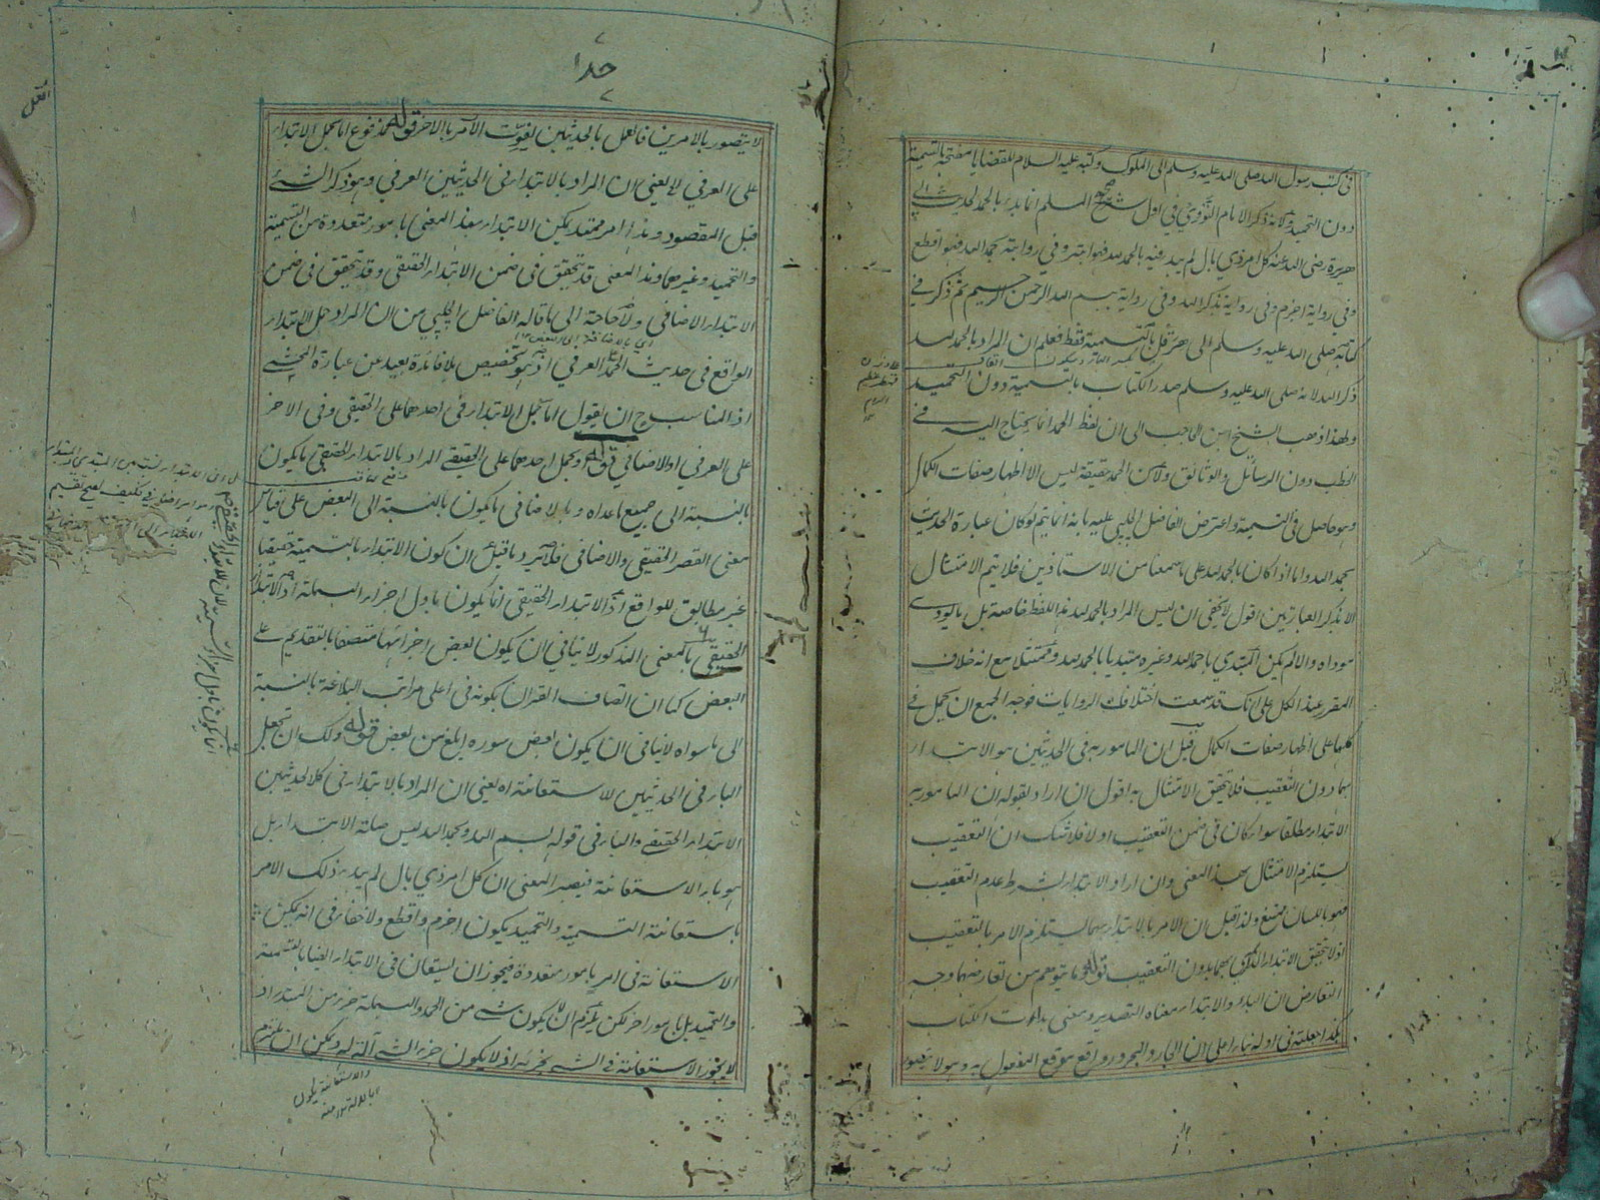 فى كتب رسول الله صلى الله عليه وسلم الى الملوك وكتبه عليه السلام للقضايا مفتتحة بالتسمية
دون التحميد ولانه ذكر الامام النووي في اول شرح صحيح المسلم انا بدء بالحمد لحديث ابي
هريرة رضى الله عنه كل امر ذي بال لم يبدء فيه بالحمد لله فهو ابتر وفي رواية بحمد الله فهو اقطع
وفي رواية اجزم وفى رواية بذكر الله وفى رواية ببسم الله الرحمن الرحيم ثم ذكر في
كتابه صلى الله عليه وسلم الى هرقل بالتسمية فقط فعلم ان المراد بالحمد لله
ذكر الله لانه صلى الله عليه وسلم صدر الكتاب بالتسمية دون التحميد
ولهذا ذهب الشيخ ابن الحاجب الى ان لفظ الحمد انما يحتاج اليه في
الخطب دون الرسائل والوثائق ولان الحمد حقيقة ليس الا اظهار صفات الكمال
وهو حاصل فى التسمية واعترض الفاضل الچلپي عليه بانه انما يتم لو كان عبارة الحديث
بحمد الله واما اذا كان بالحمد لله على ما سمعنا من الاستاذين فلا يتم الامتثال
الا بذكر العبارتين اقول لا يخفى ان ليس المراد بالحمد لله هذا اللفظ خاصة بل ما يودى
موداه والا لم يكن المبتدي باحمد الله وغيره مبتديا بالحمد لله وممتثلا مع انه خلاف
المقرر عند الكل على انك قد سمعت اختلاف الروايات فوجه الجمع ان يحمل في
كلها على اظهار صفات الكمال قيل ان المامور به فى الحديثين هو الابتداء
بهما دون التعقيب فلا يتحقق الامتثال به اقول ان اراد بقوله ان المامور به
الابتداء مطلقا سواء كان فى ضمن التعقيب اولا فلا شك ان التعقيب
يستلزم الامتثال بهذا المعنى وان اراد الابتداء بشرط عدم التعقيب
فهو باللسان ممتنع ولذا قيل ان الامر بالابتداء بهما يستلزم الامر بالتعقيب
اذ لا يتحقق الابتداء الذكري بهما بدون التعقيب قوله وما يتوهم من تعارضهما وجه
التعارض ان البدء والابتداء معناه التصدير ومعنى بدات الكتاب
بكذا جعلته فى اوله بناء على ان الجار والمجرور واقع موقع المفعول به وهو لا يتصور
جلدا
لا يتصور بالامرين فالعمل بالحديثين يفوت الآخر بالاخر قوله مدفوع اما بحمل الابتداء
على العرفي لا يعنى ان المراد بالابتداء فى الحديثين العرفي وهو ذكر الشئ
قبل المقصود وهذا امر ممتد يمكن الابتداء بهذا المعنى بامور متعددة من التسمية
والتحميد وغيرهما وهذا المعنى قد يتحقق فى ضمن الابتداء الحقيقي وقد يتحقق فى ضمن
الابتداء الاضافى ولا حاجة الى ما قاله الفاضل الچلپي من ان المراد حمل الابتداء
اي بالاضافة الى البعض
الواقع فى حديث الحمد على العرفي اذ هو تخصيص بلا فائدة بعيد عن عبارة المحشي
اذ المناسب ح ان يقول اما بحمل الابتداء فى احدهما على الحقيقى وفى الاخر
على العرفي او الاضافي قوله او يحمل احدهما على الحقيقى المراد بالابتداء الحقيقى ما يكون
بالنسبة الى جميع ما عداه وبالاضافى ما يكون بالنسبة الى البعض على قياس
معنى القصر الحقيقى والاضافى فلا يرد ما قيل ان كون الابتداء بالتسمية حقيقيا
غير مطابق للواقع اذ الابتداء الحقيقى انما يكون باول اجزاء البسملة اذ الابتداء
الحقيقى بالمعنى المذكور لا ينافى ان يكون بعض اجزائها متصفا بالتقديم على
البعض كما ان اتصاف القران بكونه فى اعلى مراتب البلاغة بالنسبة
الى ما سواه لا ينافى ان يكون بعض سوره ابلغ من بعض قوله ولك ان تجعل
الباء فى الحديثين للاستعانة اه يعنى ان المراد بالابتداء فى كلا الحديثين
الابتداء الحقيقى والباء فى قوله بسم الله وبحمد الله ليس صلة الابتداء بل
هو باء الاستعانة فيصير المعنى ان كل امر ذي بال لم يبدء ذلك الامر
باستعانة التسمية والتحميد يكون اجزم واقطع ولا خفاء فى انه يمكن
الاستعانة فى امر بامور متعددة فيجوز ان يستعان فى الابتداء ايضا بالتسمية
والتحميد بل بامور اخر لكن يلزم ان لا يكون شئ من الحمد والبسملة جزء من المبتدا اذ
لا يجوز الاستعانة فى الشئ بجزئه اذ لا يكون جزء الشئ آلة له ويمكن ان يلتزم